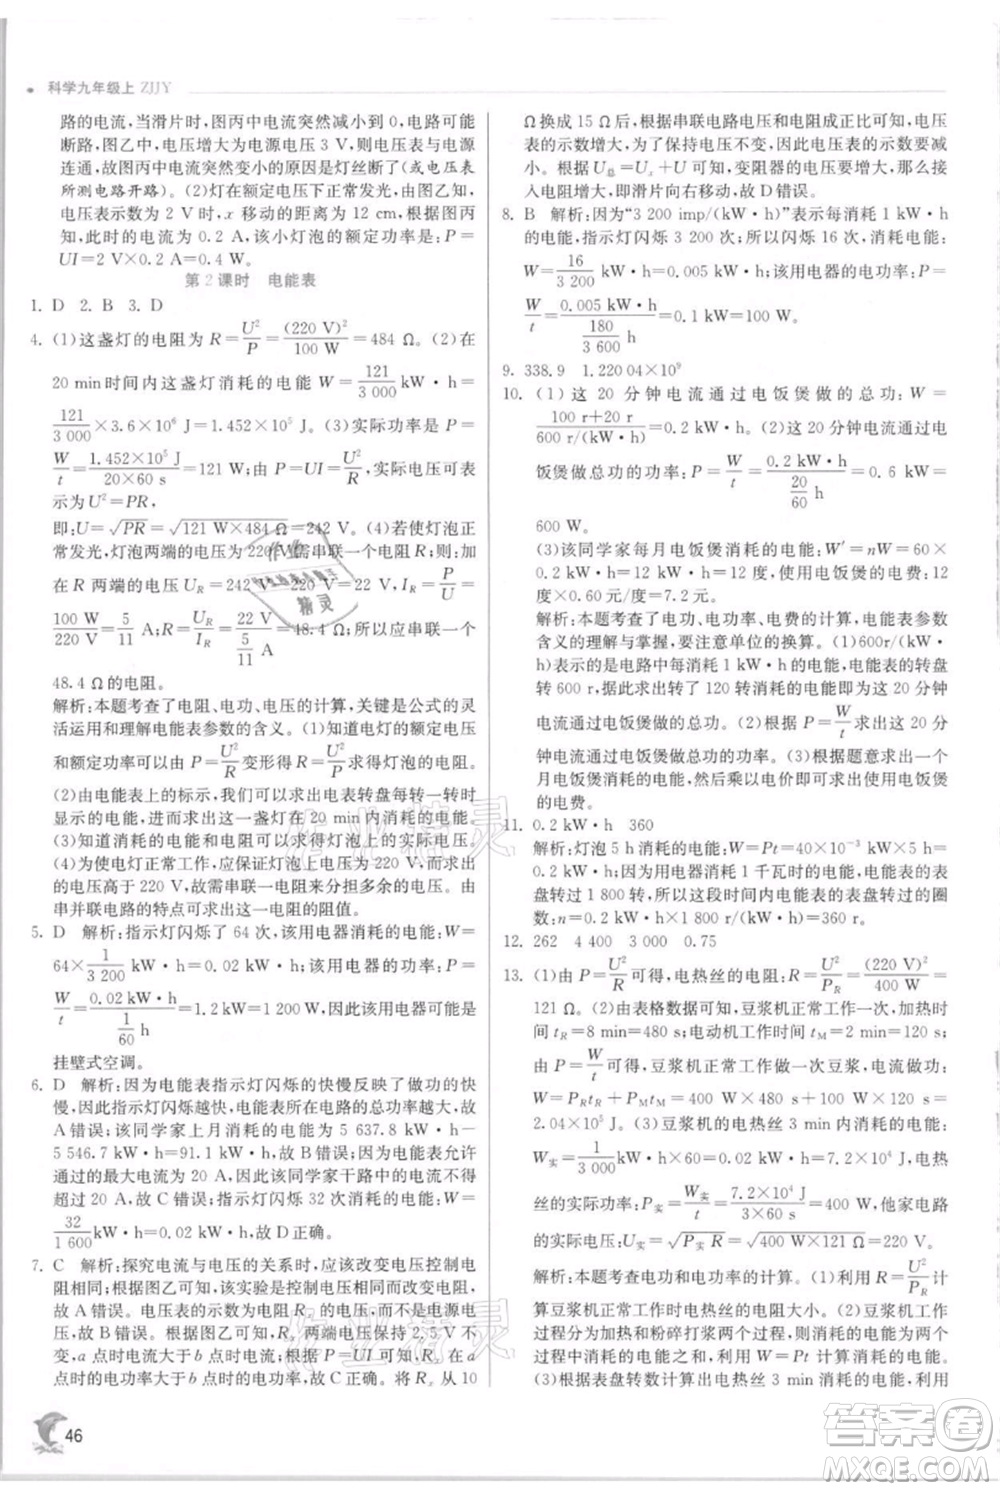 科学九年级上 ZJJY
路的电流,当滑片时,图丙中电流突然减小到 0,电路可能
断路。当图丁中,电压增大为电压 3 V,则电压表与电源
连通,故图丙中电流突然变小的原因是灯丝断了(或电压表
所测电路开路)。(2)灯在额定电压下正常发光,由图乙知,
电压表示数为 2 V 时,x 移动的距离为 12 cm,根据图丙
知,此时的电流为 0.2 A,该小灯泡的额定功率是:P=
UI=2 V×0.2 A=0.4 W。
第 2 课时 电能表
1. D 2. B 3. D
4. (1)这盏灯的电阻 R=U²/P=(220 V)²/100 W=484 Ω (2)在
20 min时间内这盏灯消耗的电能 W=121/3 000 kW·h=
121/3 000×3.6×10⁶ J=1.452×10⁵ J。(3)实际功率是 P=
W/t=1.452×10⁵ J/20×60 s=121 W;由 P=UI=U²/R,实际电压可表
示为 U²=PR,
即:U=√PR=√121 W×484 Ω=242 V。(4)若使灯泡正
常发光,灯泡两端的电压为 220 V,需串联一个电阻 R;加
在 R 两端的电压 U_R=242 V-220 V=22 V,I_R=P/U=
100 W/220 V=5/11 A;R=U_R/I_R=22 V/(5/11 A)=48.4 Ω;所以应串联一个
48.4 Ω的电阻。
解析:本题考查了电阻、电功、电压的计算,关键是公式的灵
活运用和理解电能表参数的含义。(1)知道电灯的额定电压
和额定功率,可以由 P=U²/R 变形得 R=U²/P求得灯泡的电阻。
(2)由电能表上的标示,我们可以求出电表转盘每转一转时
显示消耗的电能,进而求出这一盏灯在 20 min 内消耗的电能。
(3)知道消耗的电能和所用时间可以求得灯泡的实际功率。
(4)为使电灯正常工作,应保证灯泡上电压为 220 V,由于电
压高于 220 V,故需串联一个电阻来分担多余的电压。由
串并联电路的特点可求出这一电阻的阻值。
5. D 解析:指示灯闪烁了 64 次,该用电器消耗的电能:W=
64×1/3 200 kW·h=0.02 kW·h;该用电器的功率:P=
W/t=0.02 kW·h/(1/60 h)=1.2 kW=1 200 W,因此该用电器可能是
挂壁式空调。
6. D 解析:因为电能表指示灯闪烁的快慢反映了做功的快
慢,指示灯闪烁越快,电能表所在电路的总功率越大,故
A 错误;该同学家上月消耗的电能为 5 637.8 kW·h-
5 546.7 kW·h=91.1 kW·h,故 B 错误;电能表允许
通过的最大电流为 20 A,因此该同学家干路中的电流不能
超过 20 A,故 C 错误;指示灯闪烁 32 次消耗的电能:W=
32/1 600 kW·h=0.02 kW·h,故 D 正确。
7. C 解析:探究电流与电压的关系时,应该改变电压控制
电阻相同;根据图乙可知,该实验是控制电压而改变电阻,
故 A 错误。电压表的示数为电阻 Rₓ 的电压,而不是电源电
压,故 B 错误。由图乙可知,Rₓ 两端电压保持 2.5 V 不
变,a 点时电流大于 b 点时电流,根据 P=UI 可知,电阻在 a
点时的电功率大于在 b 点时的电功率,故 C 正确。将 Rₓ 从 10
Ω换成 15 Ω后,根据串联电路电压和电阻成正比可知,电压
表的示数增大,为了保持电压不变,因此电压表的示数要减
小。根据 U总=Uₓ+U 可知,变阻器的电压要增大,故接
入电阻增大,即滑片向右移动,故 D 错误。
8. B 解析:因为“3 200 imp/(kW·h)”表示每消耗 1 kW·h
的电能,指示灯闪烁 3 200 次;所以闪烁 16 次,消耗的电能:
W=16/3 200 kW·h=0.005 kW·h;该用电器的电功率:P=
W/t=0.005 kW·h/(180/3 600 h)=0.1 kW=100 W。
9. 338.9 1.220 04×10⁹
10. (1)这 20 分钟电流通过电饭煲做的总功:W=
100 r+20 r/600 r/(kW·h)=0.2 kW·h。(2)这 20 分钟电流通过电
饭煲做总功的功率:P=W/t=0.2 kW·h/(20/60 h)=0.6 kW=
600 W。
(3)该同学家每月电饭煲消耗的电能:W′=nW=60×
0.2 kW·h=12 kW·h=12 度,使用电饭煲的电费:12
度×0.60 元/度=7.2 元。
解析:本题考查了电功、电功率、电费的计算,电能表参数
含义的理解与掌握,要注意单位的换算。(1)600r/(kW·
h)表示的是电路中每消耗 1 kW·h 的电能,电能表的转盘
转 600r,据此求出转了 120 转消耗的电能即为这 20 分钟
电流通过电饭煲做的总功。(2)根据 P=W/t求出这 20 分
钟电流通过电饭煲做总功的功率。(3)根据题意求出一个
月电饭煲消耗的电能,然后乘以电价即可求出使用电饭煲
的电费。
11. 0.2 kW·h 360
解析:灯泡 5 h消耗的电能:W=Pt=40×10⁻³ kW×
5 h=0.2 kW·h。因为用电器消耗 1 千瓦时的电能,电能表的表
盘转过 1 800 转,所以这段时间内电能表的表盘转过的圈
数:n=0.2 kW·h×1 800 r/(kW·h)=360 r。
12. 262 4 400 3 000 0.75
13. (1)由 P=U²/R可得,电热丝的电阻:R=U²/P_R=(220 V)²/400 W=
121 Ω。(2)由表格数据可知,豆浆机正常工作一次,加热时
间 t_R=8 min=480 s;电动机工作时间 t_M=2 min=120
s,由 P=W/t可得,豆浆机正常工作一次,电流做功:
W=P_Rt_R+P_Mt_M=400 W×480 s+100 W×120 s=
2.04×10⁵ J。(3)豆浆机电热丝 3 min 内消耗的电能:
W实=1/3 000 kW·h×60=0.02 kW·h=7.2×10⁴ J,电热
丝的实际功率:P实=W实/t=7.2×10⁴ J/3×60 s=400 W,他家电路
的实际电压:U实=√P实R=√400 W×121 Ω=220 V。
解析:本题考查电功和电功率的计算。(1)利用 R=U²/P_R计
算豆浆机正常工作时电热丝的电阻大小。(2)豆浆机的工
作过程分为加热和粉碎打浆两个过程,分别求出两个过程
的功率、时间和消耗的电能之和,利用 W=Pt 计算消耗的电
能。(3)根据表盘转数计算 3 min 消耗的电能,利用
作业精灵
作业精灵
精灵
46
答案圈
MXQE.COM